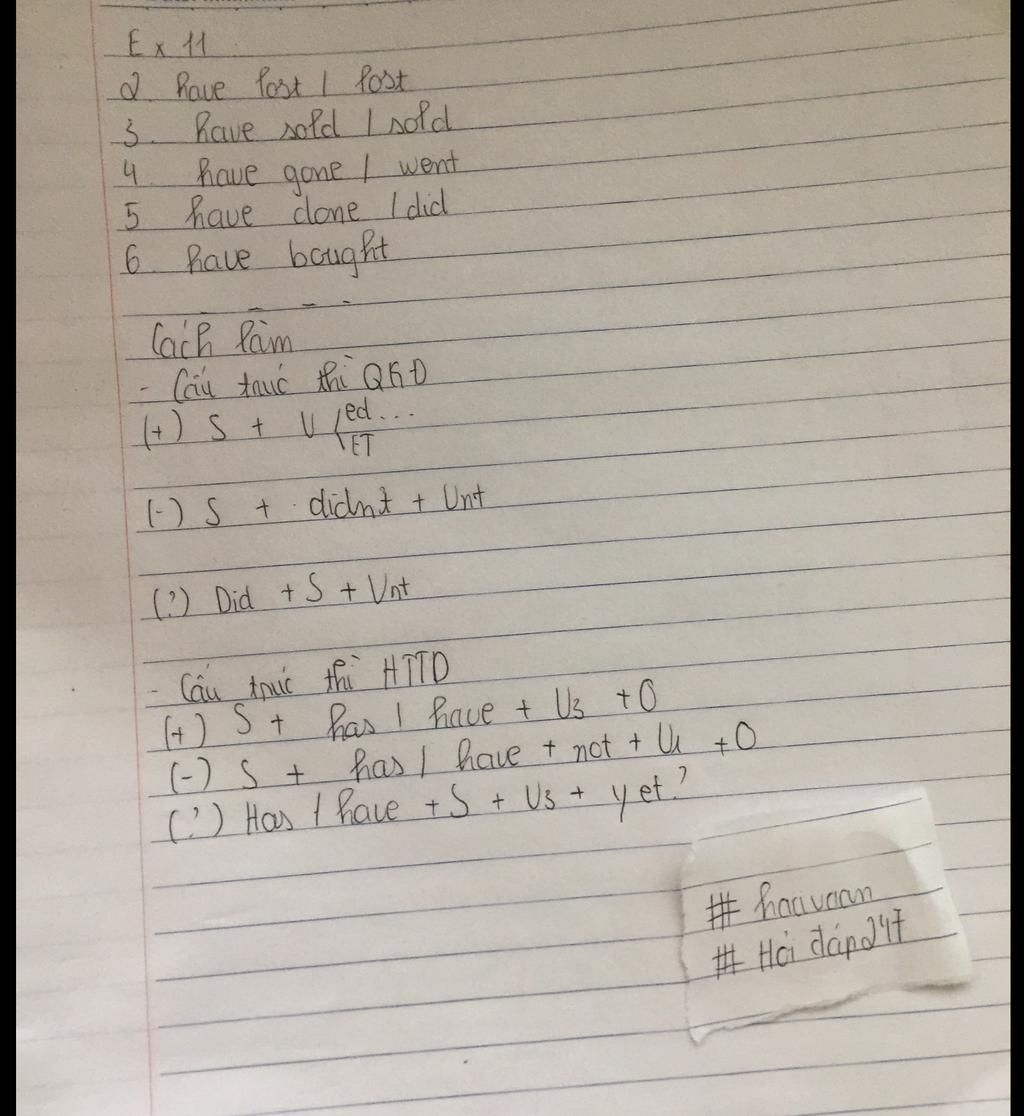 Ex 11
2. have lost / lost
3. have sold / sold
4 have gone / went
5 have done / did
6. have bought
Cách làm
- Cấu trúc thì QKĐ
(+) S + V ed...
BT
(-) S + didn't + Vnt
(?) Did + S + Vnt
- Cấu trúc thì HTTD
(+) S + has / have + V3 + O
(-) S + has / have + not + + O
(?) Has / have + S + V3 + yet?
# hauvaan
# Hỏi đáp247